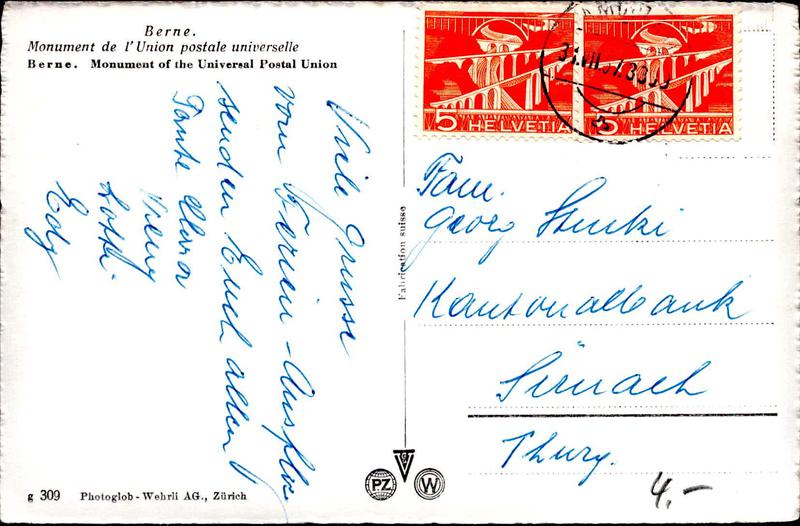 Berne.
Monument de l'Union postale universelle
Berne. Monument of the Universal Postal Union
Viele Grüsse
vom Ferien-Ausflug
senden Euch allen
Tante Clara
Willy
Edy
5 HELVETIA
5 HELVETIA
31.VII.57.
Fabrication suisse
Fam.
Georg Stucki
Kantonalbank
Sirnach
Thurg.
4.-
PZ
W
g 309 Photoglob-Wehrli AG., Zürich